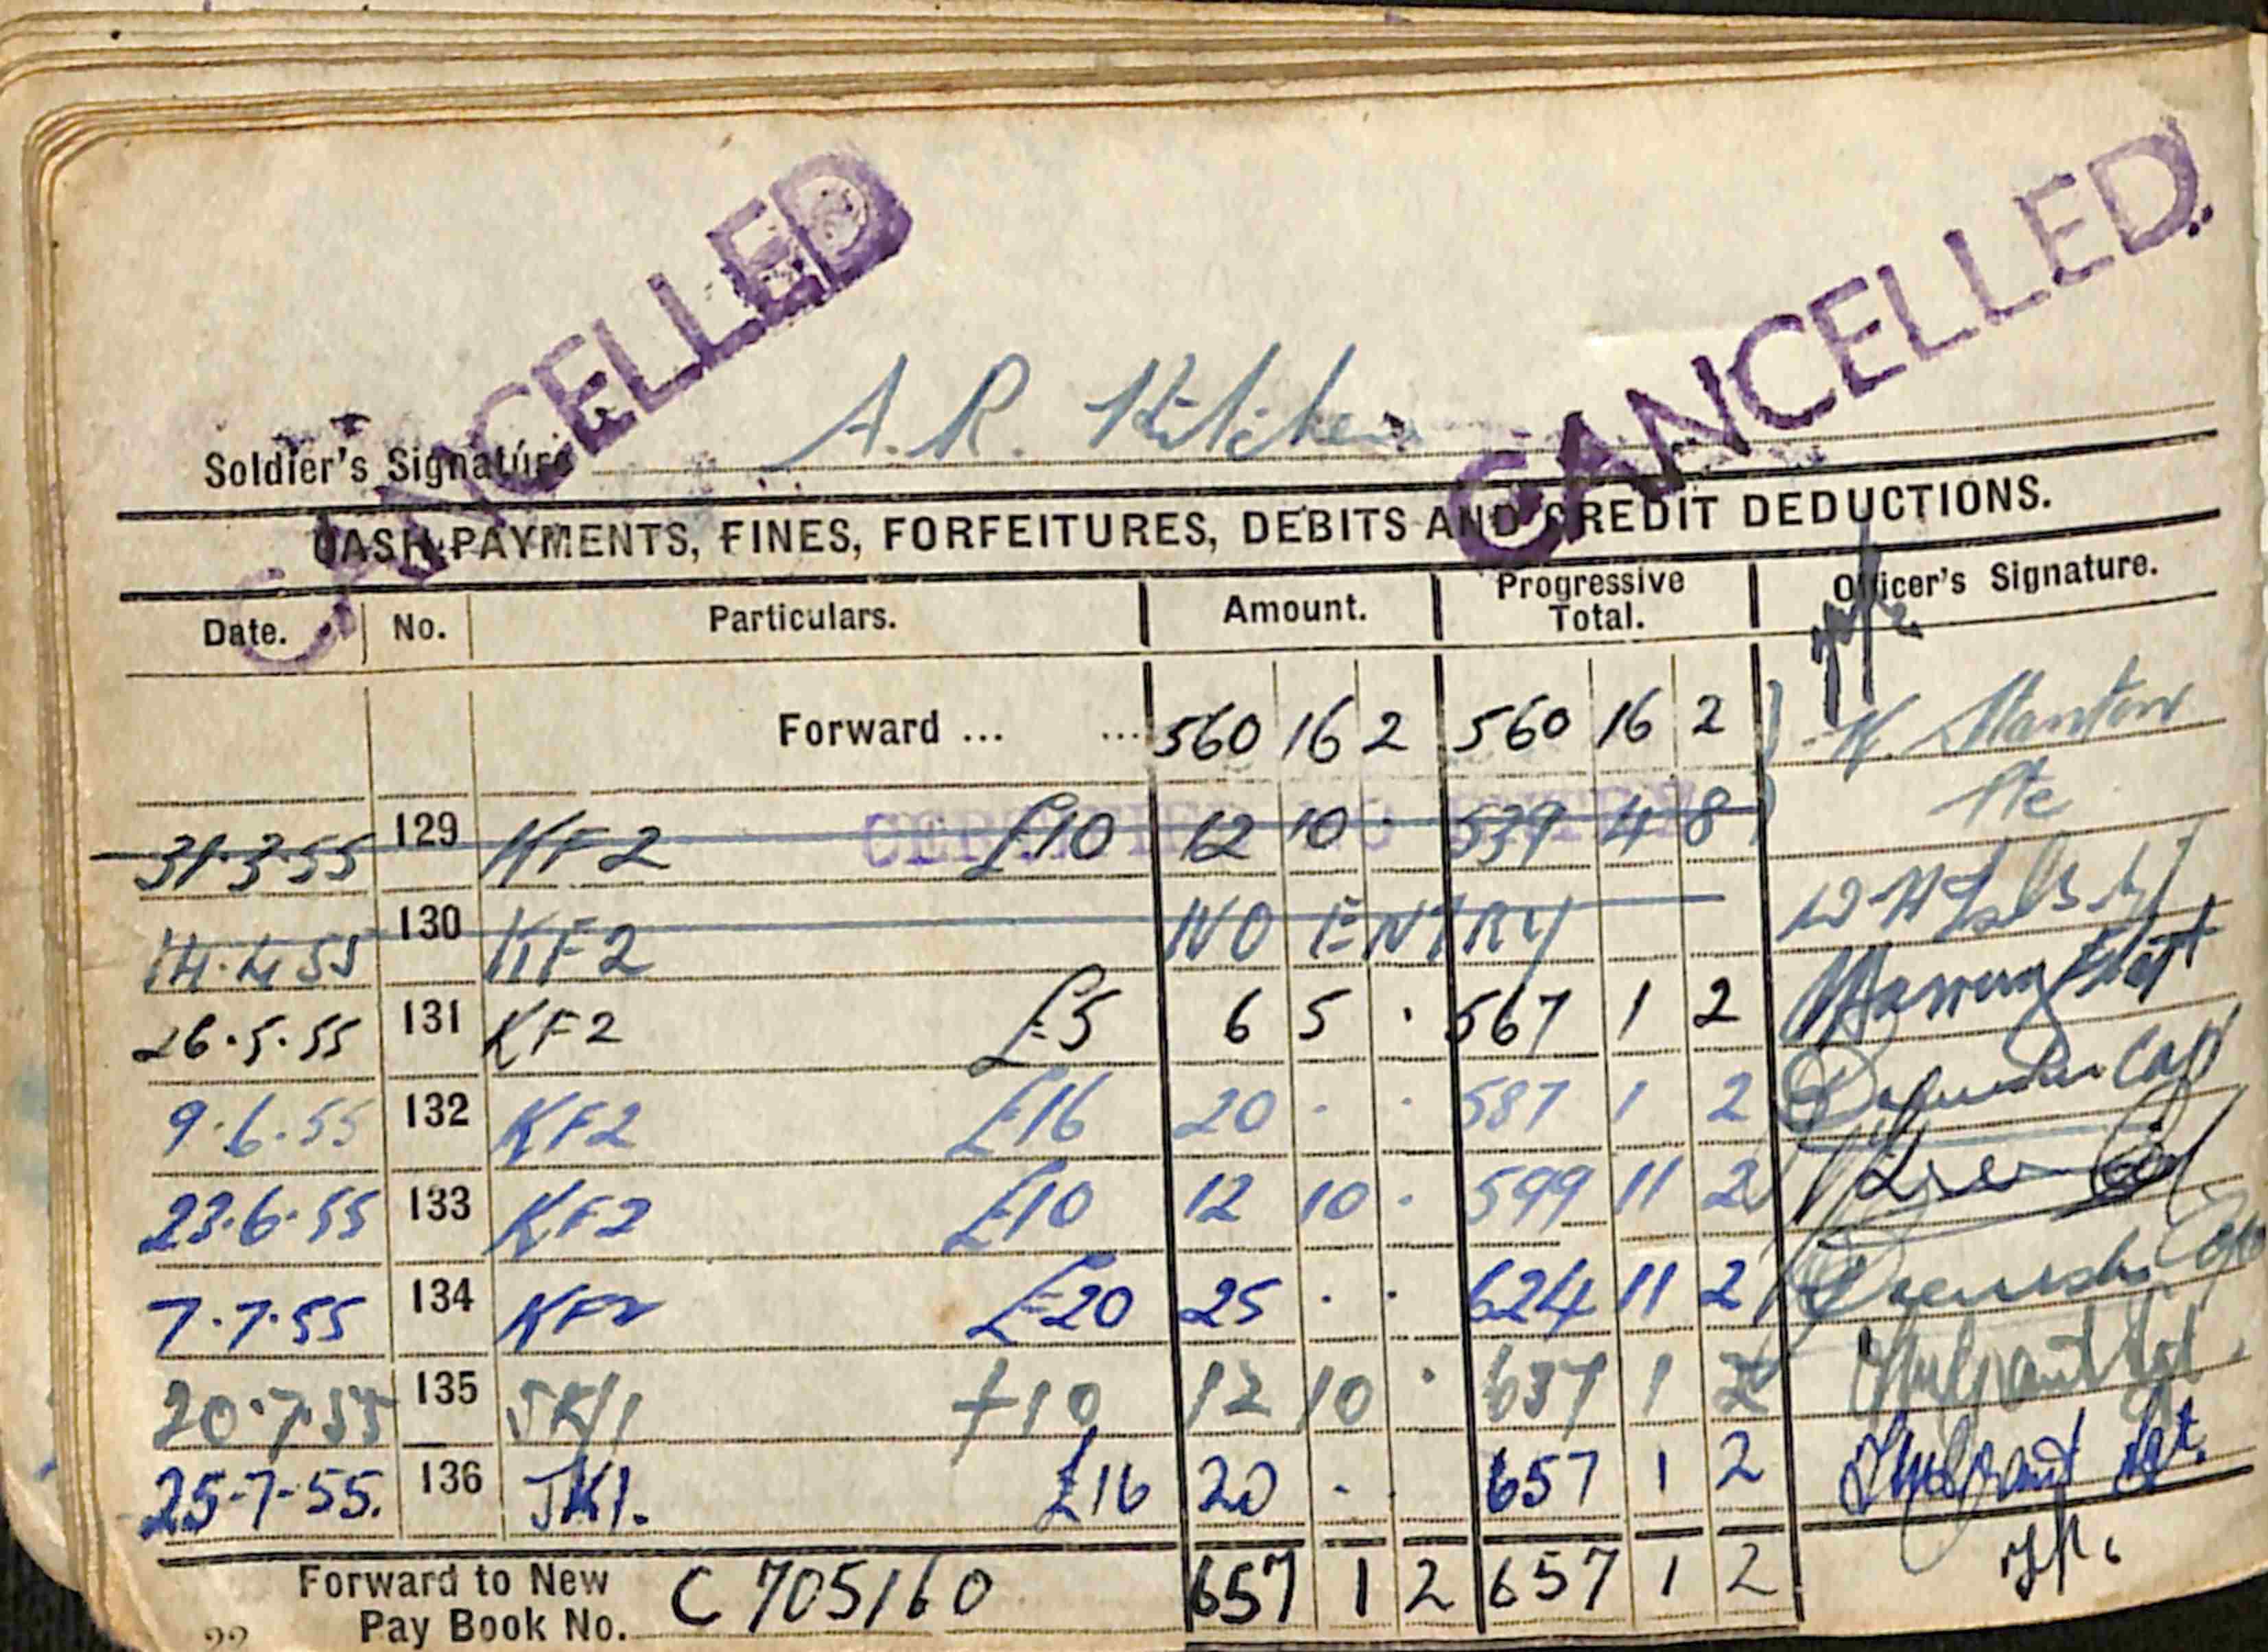 CANCELLED
CANCELLED.
Soldier's Signature A. R. Kitchen
CASH PAYMENTS, FINES, FORFEITURES, DEBITS AND CREDIT DEDUCTIONS.
Date. No. Particulars. Amount. Progressive Total. Officer's Signature.
Forward ... ... 560 16 2 560 16 2 K. Stanton
CERTIFIED NO ENTRY
31.3.55 129 KF2 £10 12 10 · 539 4 8 Pte
14.4.55 130 KF2 NO ENTRY
26.5.55 131 KF2 £5 6 5 · 567 1 2
9.6.55 132 KF2 £16 20 · · 587 1 2 Capt
23.6.55 133 KF2 £10 12 10 · 599 11 2
7.7.55 134 KF2 £20 25 · · 624 11 2
20.7.55 135 JK1 £10 12 10 · 637 1 2
25-7-55. 136 JK1. £16 20 - . 657 1 2
Forward to New Pay Book No. C 705160 657 1 2 657 1 2
22